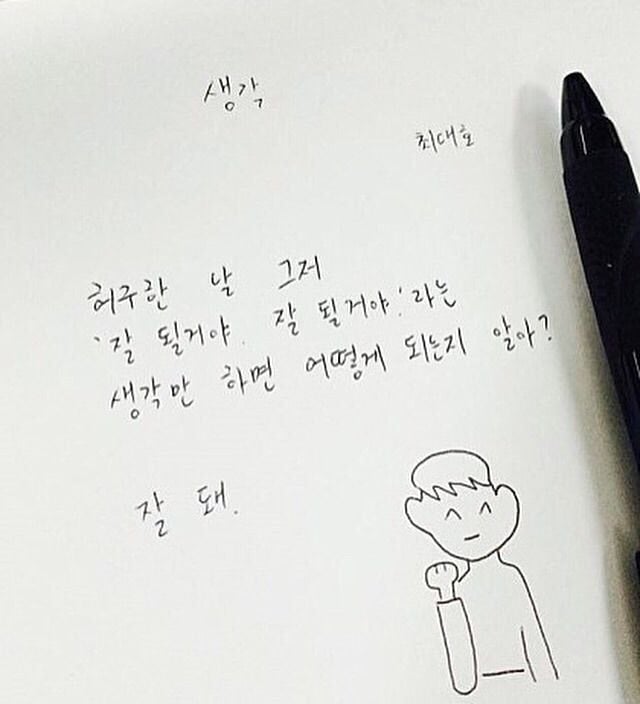 생각
최대호
허구한 날 그저
'잘 될거야. 잘 될거야.'라는
생각만 하면 어떻게 되는지 알아?
잘 돼.